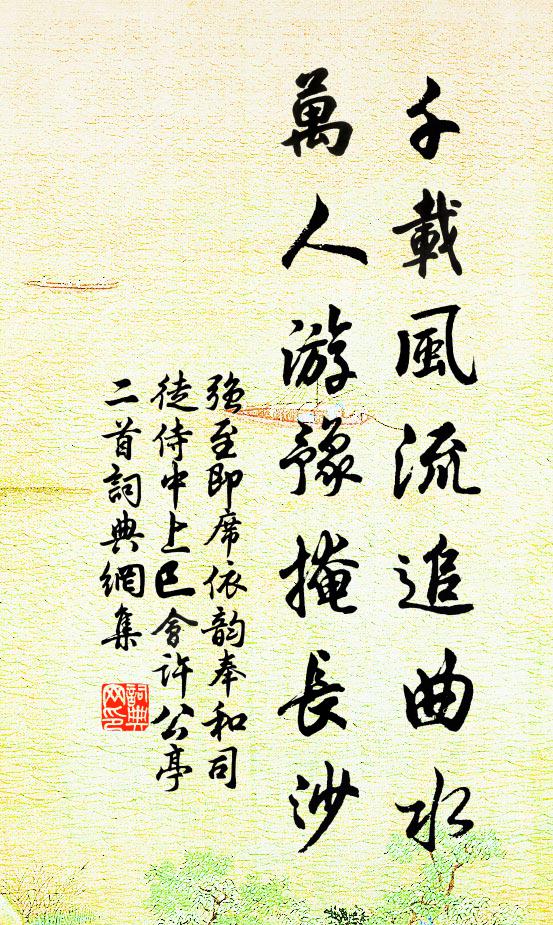 千載風流追曲水
萬人游豫掩長沙
強至即席依韵奉和司
徒侍中上巳會許公亭
二首詞典網集
詞典
网印